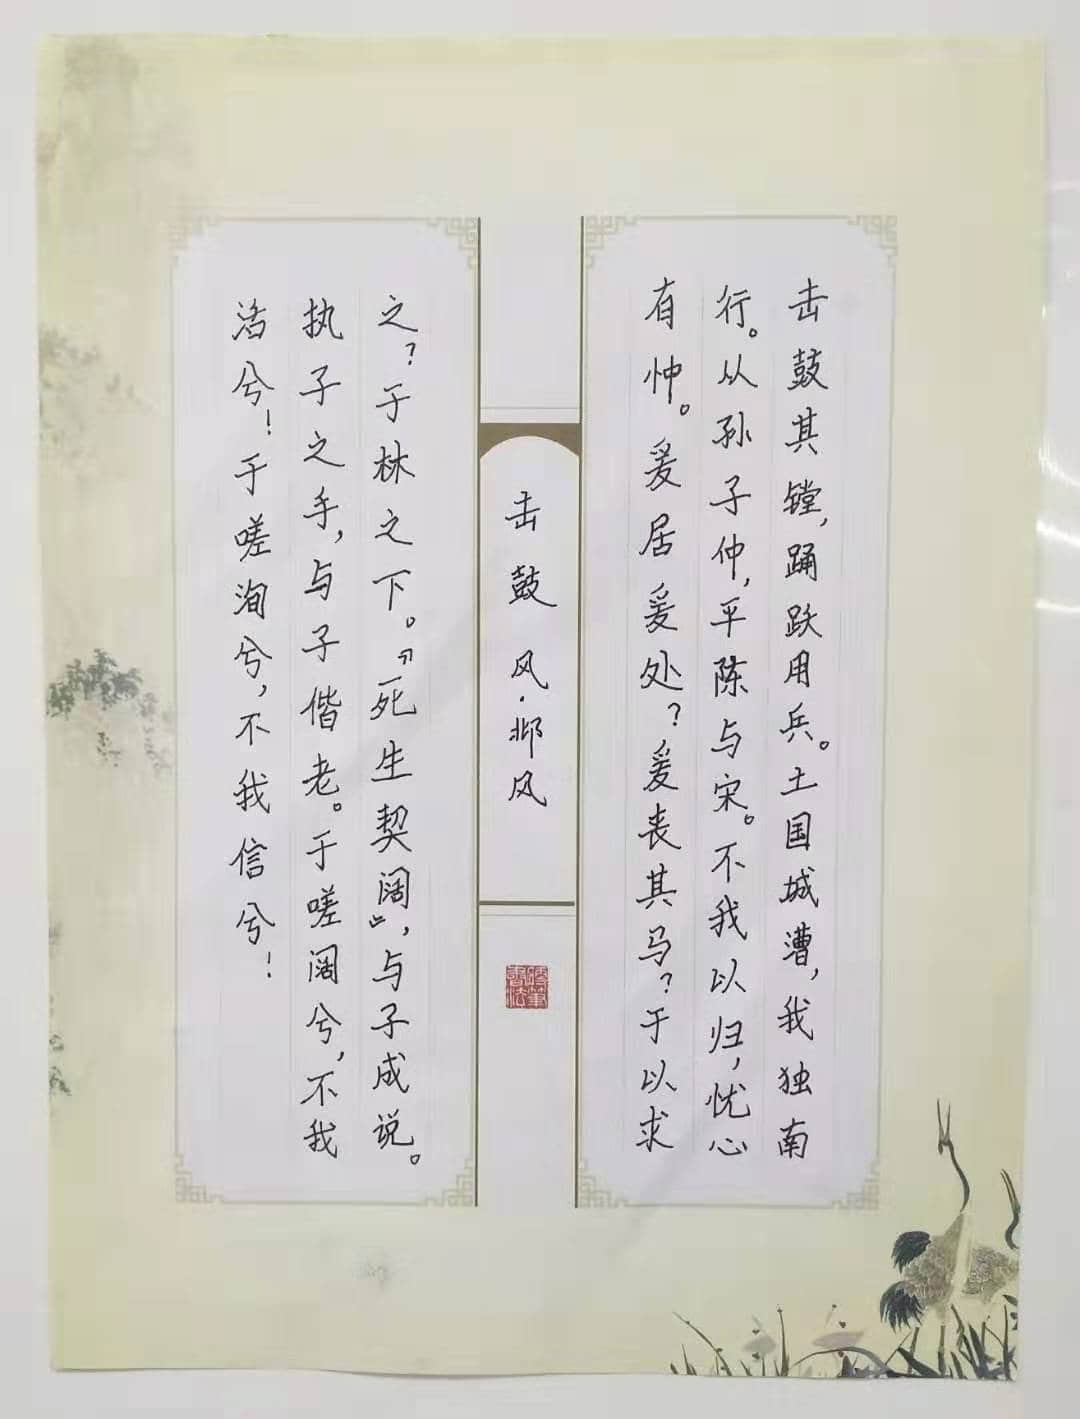 击鼓其镗，踊跃用兵。土国城漕，我独南
行。从孙子仲，平陈与宋。不我以归，忧心
有忡。爰居爰处？爰丧其马？于以求
击鼓 风·邶风
硬筆
書法
之？于林之下。『死生契阔』，与子成说。
执子之手，与子偕老。于嗟阔兮，不我
活兮！于嗟洵兮，不我信兮！